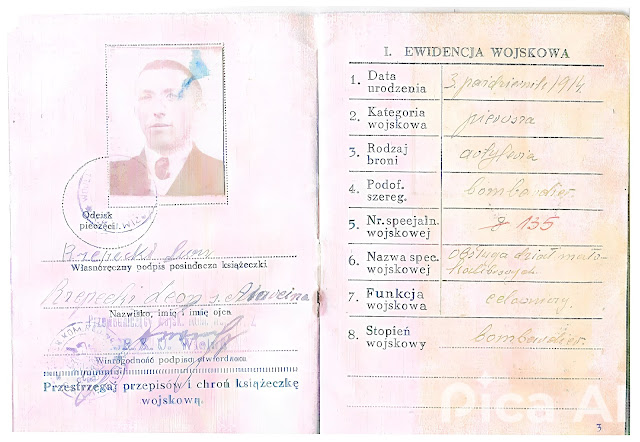 Odcisk
pieczęci
Rzepecki Leon
Własnoręczny podpis posiadacza książeczki
Rzepecki Leon s. Marcina
Nazwisko, imię i imię ojca
Wiarogodność podpisu stwierdzam
Przestrzegaj przepisów i chroń książeczkę
wojskową.
I. EWIDENCJA WOJSKOWA
1. Data urodzenia 3. październik 1914
2. Kategoria wojskowa pierwsza
3. Rodzaj broni artyleria
4. Podof. szereg. bombardier.
5. Nr. specjaln. wojskowej 135
6. Nazwa spec. wojskowej Obsługa dział mało-
kalibrowych.
7. Funkcja wojskowa celowniczy.
8. Stopień wojskowy bombardier.
3
Pica AI